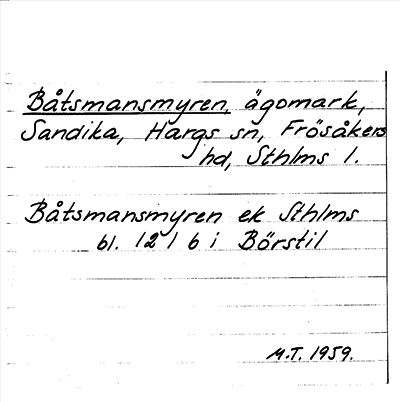 Båtsmansmyren, ägomark,
Sandika, Hargs sn, Frösåkers
hd, Sthlms l.
Båtsmansmyren ek Sthlms
bl. 12 1 6 i Börstil
M.T. 1959.